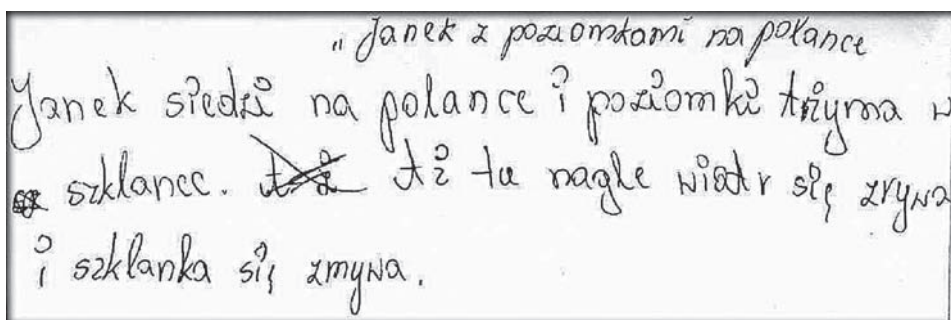 „Janek z poziomkami na polance
Janek siedzi na polance i poziomki tżyma w
szklance. Aż tu nagle wiatr się zrywa
i szklanka się zmywa.